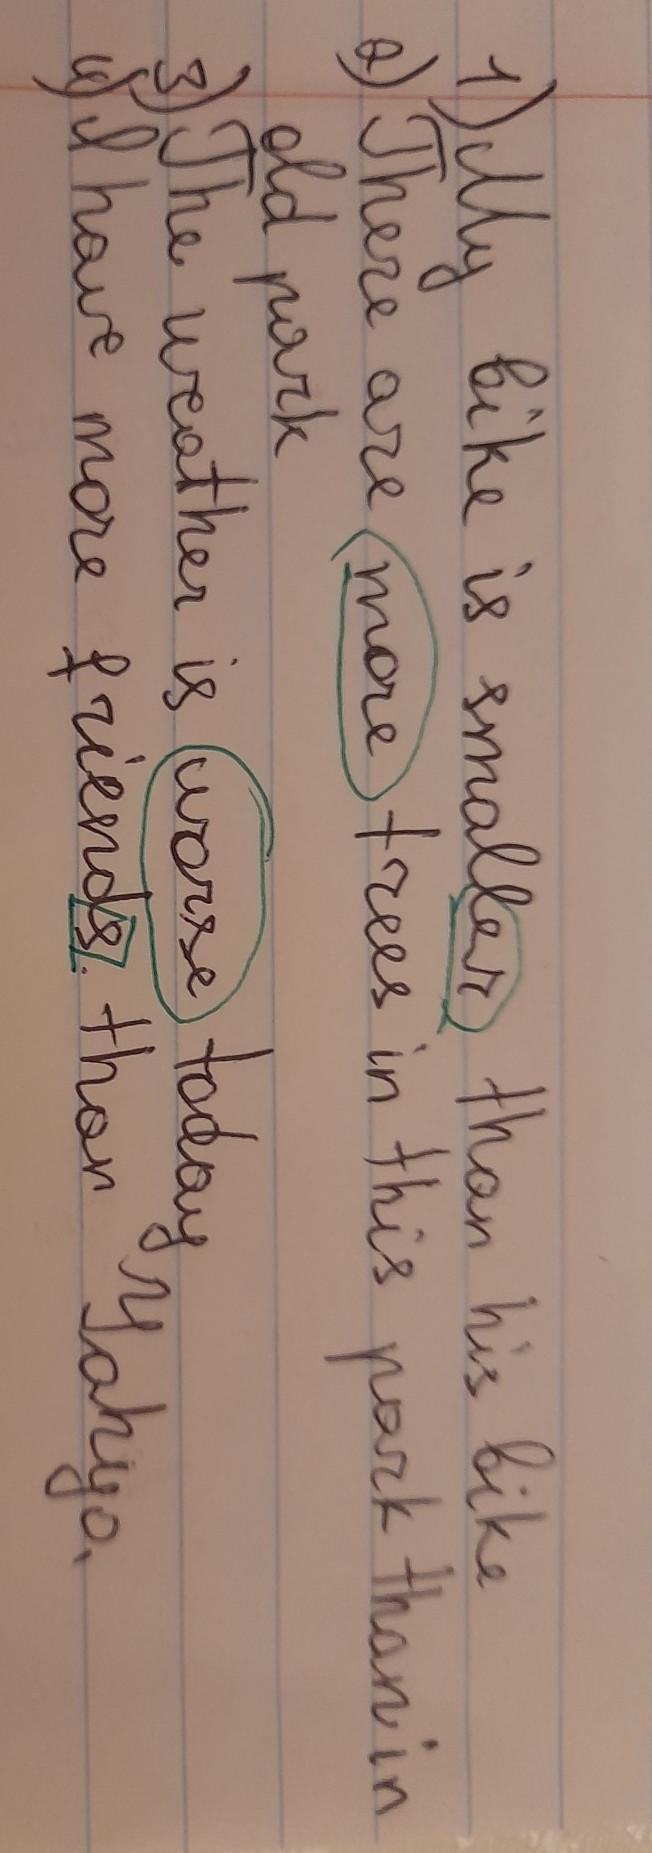 1) My bike is smaller than his bike
2) There are more trees in this park than in
old park
3) The weather is worse today
4) I have more friends. than Yahyo.